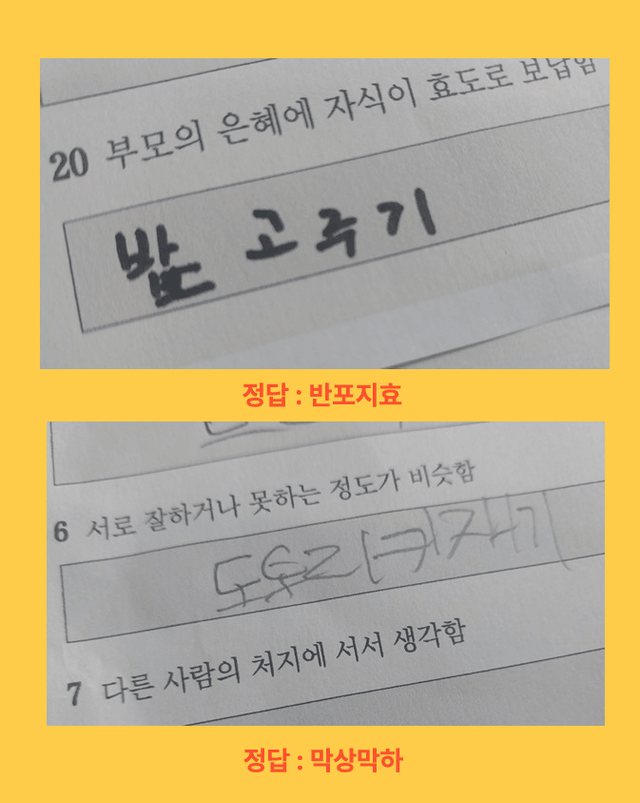 20 부모의 은혜에 자식이 효도로 보답함
밥 고주기
정답 : 반포지효
6 서로 잘하거나 못하는 정도가 비슷함
도토리키재기
7 다른 사람의 처지에 서서 생각함
정답 : 막상막하